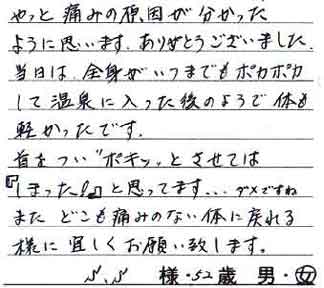 やっと痛みの原因が分かった
ように思います。ありがとうございました。
当日は、全身がいつまでもポカポカ
して温泉に入った後のようで体も
軽かったです。
首をつい"ポキッ"とさせては
『しまった!』と思ってます... ダメですね
また どこも痛みのない体に戻れる
様に宜しくお願い致します。
S.S 様・52歳 男・女